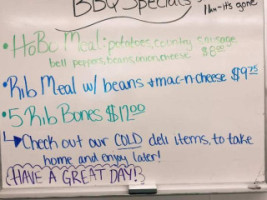 BBQ Specials
11am-it's gone
•HoBo Meal: potatoes, country sausage
bell peppers, beans, onion, cheese $8.00
•Rib Meal w/ beans + mac-n-cheese $9.25
•5 Rib Bones $12.00
Check out our COLD deli items, to take
home and enjoy later!
HAVE A GREAT DAY!